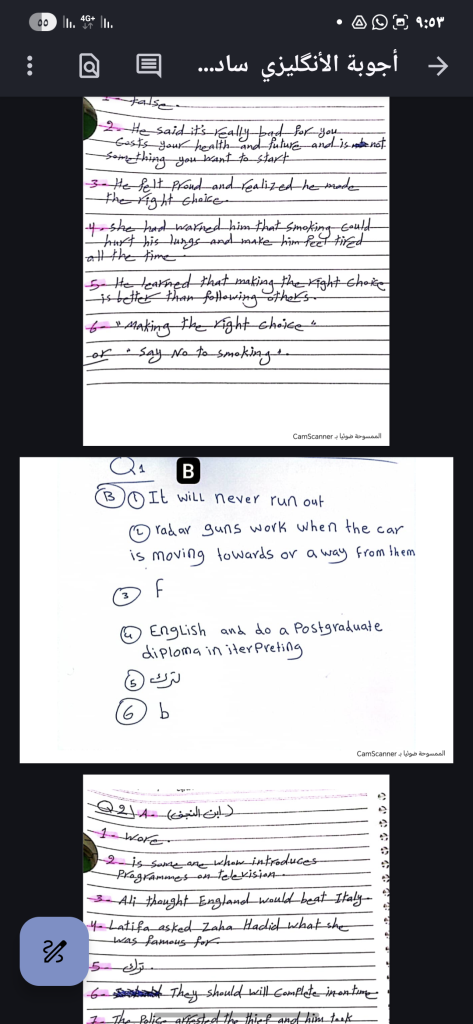 ٩:٥٣
4G+
٥٥
أجوبة الأنگليزي ساد...
1- False.
2- He said it's really bad for you
Costs your health and future and is not
something you want to start
3- He felt proud and realized he made
the right choice.
4- she had warned him that smoking could
hurt his lungs and make him feel tired
all the time.
5- He learned that making the right choice
is better than following others.
6- "Making the right choice"
or "Say No to smoking".
الممسوحة ضوئيا بـ CamScanner
Q1 B
B 1 It will never run out
2 radar guns work when the car
is moving towards or away from them
3 F
4 English and do a Postgraduate
diploma in iterPreting
5 ترك
6 b
الممسوحة ضوئيا بـ CamScanner
Q2/ A-
1- wore.
2- is some one whow introduces
Programmes on television.
3- Ali thought England would beat Italy.
4- Latifa asked Zaha Hadid what she
was famous for.
5- ترك.
6- They should will Complete in on time
7- The Police arrested the thief and him took